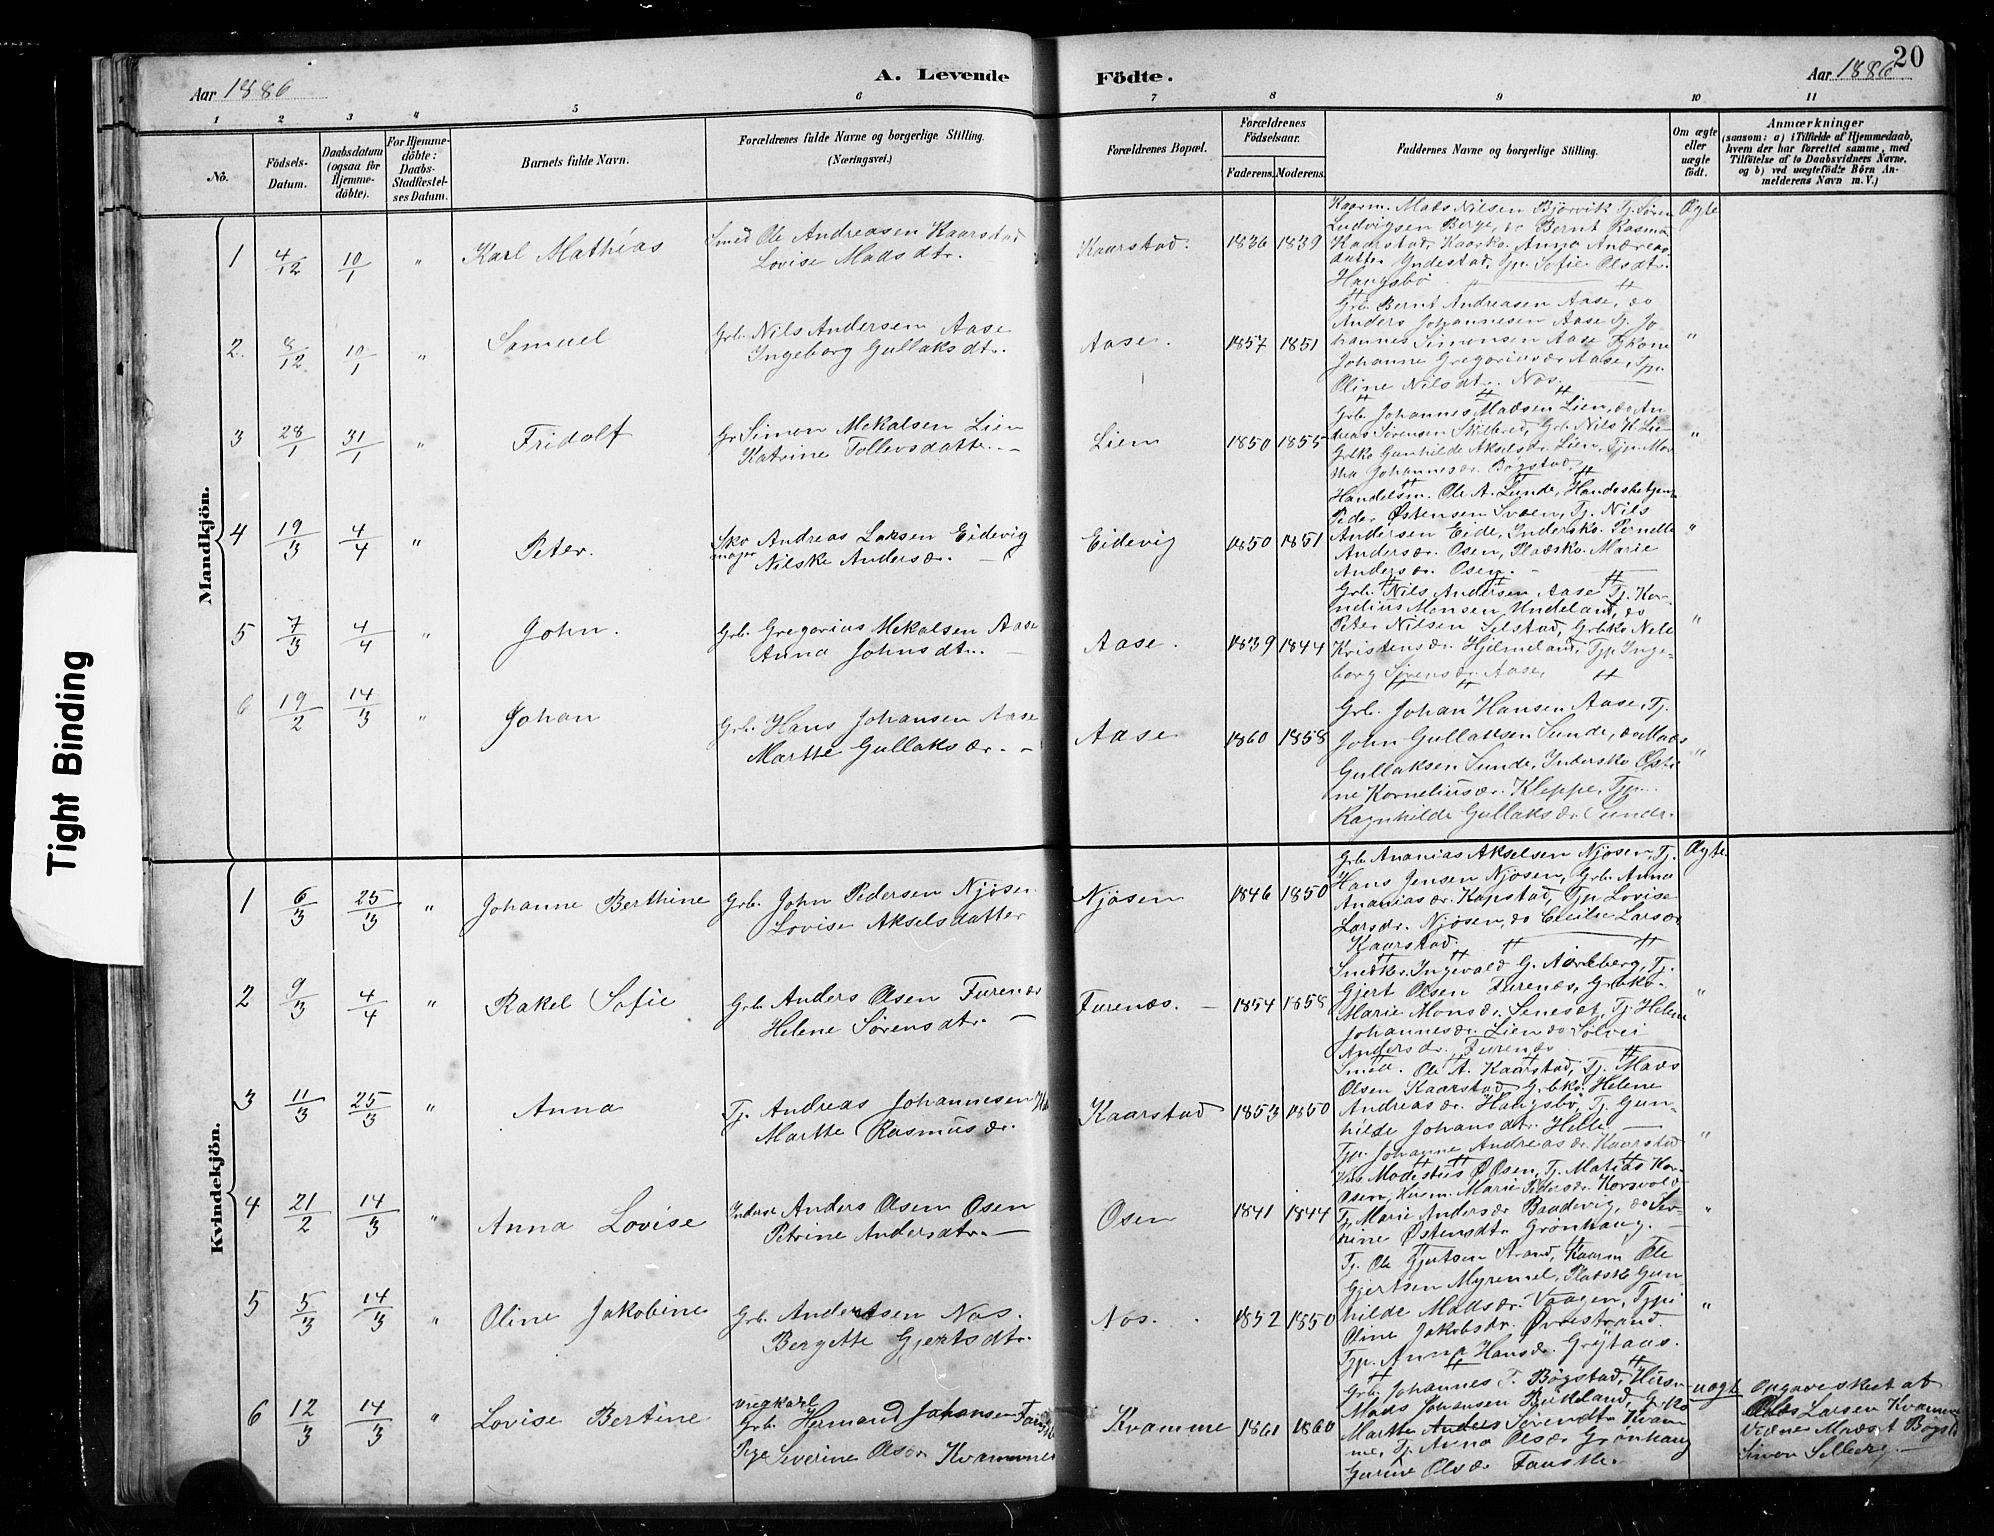 20
Aar 1886
A. Levende
Födte.
Aar 1886
1 2 3 4 5 6 7 8 9 10 11
No.
Födsels-Datum.
Daabsdatum (ogsaa for Hjemmedöbte).
For Hjemmedöbte: Daabs-Stadfæstelses Datum.
Barnets fulde Navn.
Forældrenes fulde Navne og borgerlige Stilling. (Næringsvei.)
Forældrenes Bopæl.
Forældrenes Födselsaar.
Faderens. Moderens.
Faddernes Navne og borgerlige Stilling.
Om ægte eller uægte födt.
Anmærkninger
(saasom: a) i Tilfælde af Hjemmedaab, hvem der har forrettet samme, med Tilföielse af to Daabsvidners Navne, og b) ved uægtefödte Börn Anmelderens Navn m. V.)
Mandkjön.
1 4/12 10/1 " Karl Mathias
Smed Ole Andreasen Kaarstad
Lovise Madsdtr.
Kaarstad. 1836 1839
Kaarm. Mads Nilsen Bjørvik Tj. Søren
Ludvigsen Berge, do Bernt Rasm.
Kaarstad, Kaarko. Anna Andreas
datter Yndestad, Tjp. Sofie Olsdtr.
Haugsbø
Ægte
2. 8/12 10/1 " Samuel
Grb. Nils Andersen Aase
Ingeborg Gullaksdtr.
Aase. 1857 1851
Grb. Bernt Andreasen Aase, do
Anders Johannesen Aase Tj. Jo-
hannes Simonsen Aase Tj Kone
Johanne Gregoriusdr Aase, Tjp.
Oline Nilsdtr. Nos.
"
3 28/1 31/1 " Fridolf
Gr Simon Mekalsen Lien
Katrine Tollevsdatter
Lien 1850 1855
Grb. Johannes Madsen Lien, do An-
dreas Sørensen Skilbred, Grb. Nils H. Lie
Grbko Gunhilde Akselsdr. Lien, Tjp. Mar-
tha Johannesdr. Bøgstad,
"
4 19/3 4/4 " Peter.
Sko Andreas Larsen Eidevig
mager Nilske Andersdr.
Eidevig 1850 1851
Handelsm. Ole A. Lunde, Handesbetjen
Peder Østensen Svoen, Tj. Nils
Andersen Eide, Indersko. Pernelle
Andersdr. Osen, Pladsko. Marie
Andersdr. Osen.
"
5 7/3 4/4 " John.
Grb. Gregorius Mekalsen Aase
Anna Johnsdtr.
Aase. 1839 1844
Grb. Nils Andersen Aase Tj. Kor-
nelius Monsen Undeland, do
Peter Nilsen Selstad, Grbko Nele
Kristensdr. Hjelmeland, Tjp Inge-
borg Sørensdr. Aase,
"
6 19/2 14/3 " Johan
Grb. Hans Johansen Aase
Marthe Gullaksdr.
Aase 1860 1858
Grb. Johan Hansen Aase, Tj.
John Gullaksen Sunde, do Mads
Gullaksen Sunde, Indersko Østi
ne Korneliusdr. Kleppe, Tjp.
Ragnhilde Gullaksdr. Sunde.
"
Kvindekjön.
1 6/3 25/3 " Johanne Berthine
Grb. John Pedersen Njøsen
Lovise Akselsdatter
Njøsen 1846 1850
Grb. Ananias Akselsen Njøsen, Tj.
Hans Jensen Njøsen, Grb. Anna
Ananiasdr. Kapstad, Tjp. Lovise
Larsdr. Njøsen, do Cecilie Larsdr
Kaarstad.
Ægte
2 9/3 4/4 " Rakel Sofie
Grb. Anders Olsen Furenæs
Helene Sørensdtr.
Furenæs. 1854 1858
Snedker Ingevald G. Aareberg, Tj.
Gjert Olsen Furenæs, Grbko.
Marie Monsdr. Seneset, Tj. Helene
Johannesdr. Lien do Sølvei
Andersdr. Furenæs
"
3 11/3 25/3 " Anna
Tj. Andreas Johannesen
Marthe Rasmusdr.
Kaarstad 1853 1850
Smed. Ole A. Kaarstad, Tj. Mads
Olsen Kaarstad Grbko. Helene
Andreasdr. Haugsbø, Tj. Gun-
hilde Johansdtr. Helle
Tjp. Johanne Andreasdr. Kaarstad
"
4 21/2 14/3 " Anna Lovise
Inderst Anders Olsen Osen
Petrine Andersdtr.
Osen 1841 1844
Hus. Modestus O. Osen, Tj. Matias Kor-
Osen, Husm. Marie Pedersdr. Korsvold
Tj. Marie Andersdr Baadevig, do Se-
rine Østensdtr. Grønhaug.
"
5 5/3 14/3 " Oline Jakobine
Grb. Andersen Nos.
Bergitte Gjertsdtr.
Nos. 1852 1850
Tj. Ole Gjertsen Strand, Kaarm Ole
Gjertsen Myremel, Pladsko Gun-
hilde Madsdr. Vaagen, Tjpi
Oline Jakobsdr. Øvrestrand
Tjp. Anna Hansdr. Grytaas.
"
6 12/3 14/3 " Lovise Bertine
Ungkarl
Grb. Hermand Johansen
Pige Severine Olsdr Kvamme
Kvamme 1861 1860
Grb. Johannes T. Bøgstad, Husm
Mads Johansen Birkeland, Grbko
Marthe Anders Sørensdtr. Kvam
me, Tj. Anna Olsdr Grønhaug
Gurine Olsdr Fauske.
uægte
Opgave skeet af
Olas Larsen Kvamme
Vidner Mads T. Bøgst
Simon Solberg.
Tight Binding